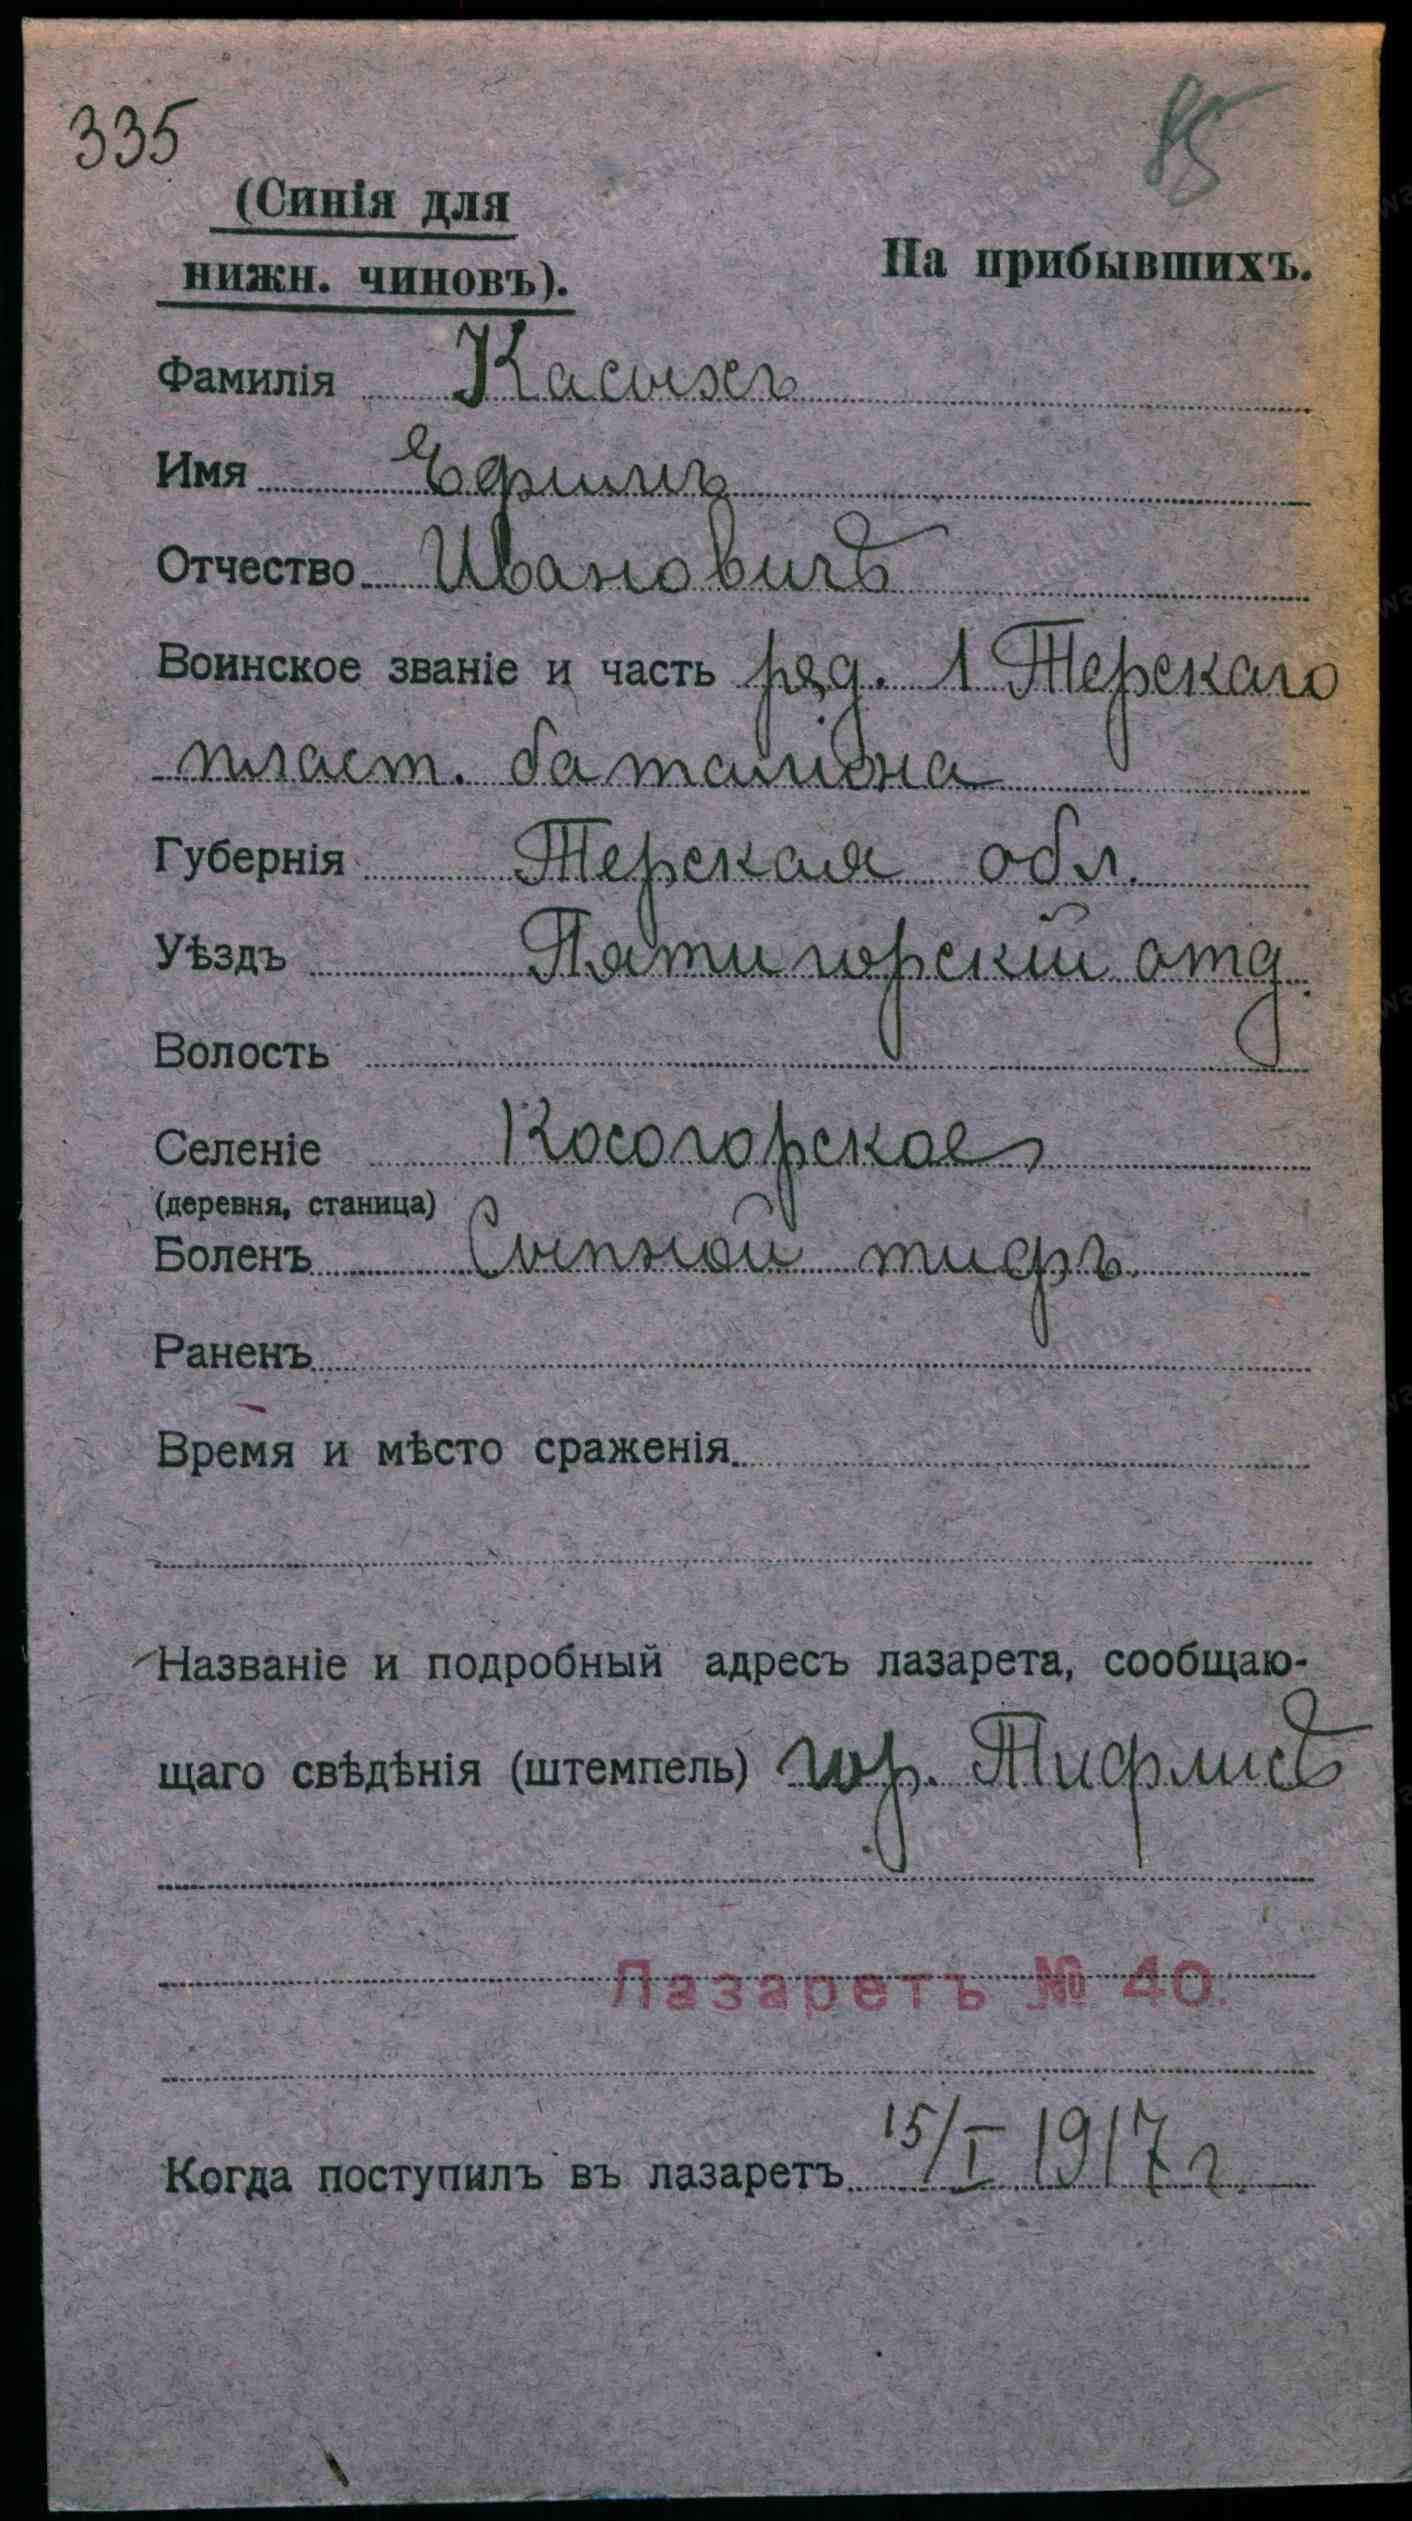 335
85
(Синія для
нижн. чиновъ).
На прибывшихъ.
Фамилія Касыхъ
Имя Ефимъ
Отчество Ивановичъ
Воинское званіе и часть ряд. 1 Терскаго
пласт. баталіона
Губернія Терская обл.
Уѣздъ Пятигорскій отд.
Волость
Селеніе Косогорское
(деревня, станица)
Боленъ Сыпной тифъ
Раненъ
Время и мѣсто сраженія
Названіе и подробный адресъ лазарета, сообщаю-
щаго свѣдѣнія (штемпель) гор. Тифлисъ
Лазаретъ № 40.
Когда поступилъ въ лазаретъ 15/I 1917 г.